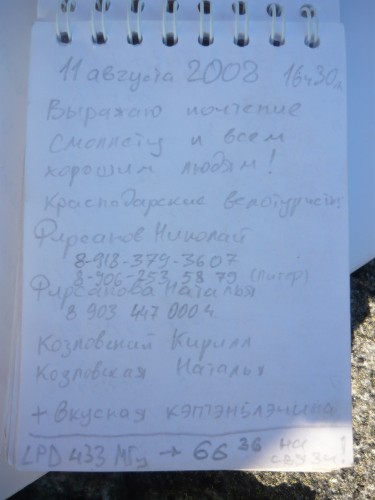 11 августа 2008 16ч30м
Выражаю почтение
и всем
хорошим людям!
Краснодарские велотуристы
Фирсанов Николай
8-918-379-3607
8-906-253 58 79 (Питер)
Фирсанова Наталья
8 903 447 0004
Козловский Кирилл
Козловская Наталья
+ Вкусная
LPD 433 МГц → 66 38 на
связи!